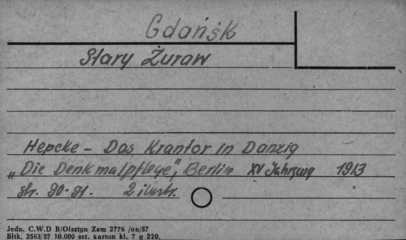 Gdańsk
Stary Żuraw
Hepcke - Das Krantor in Danzig
„Die Denkmalpflege", Berlin XV Jahrgang 1913
str. 90-91. 2 ilustr.
Jedn. C.W.D B/Olsztyn Zam 2776 /on/57
Bltk. 2563/57 10.000 szt. karton kl. 7 g 220.